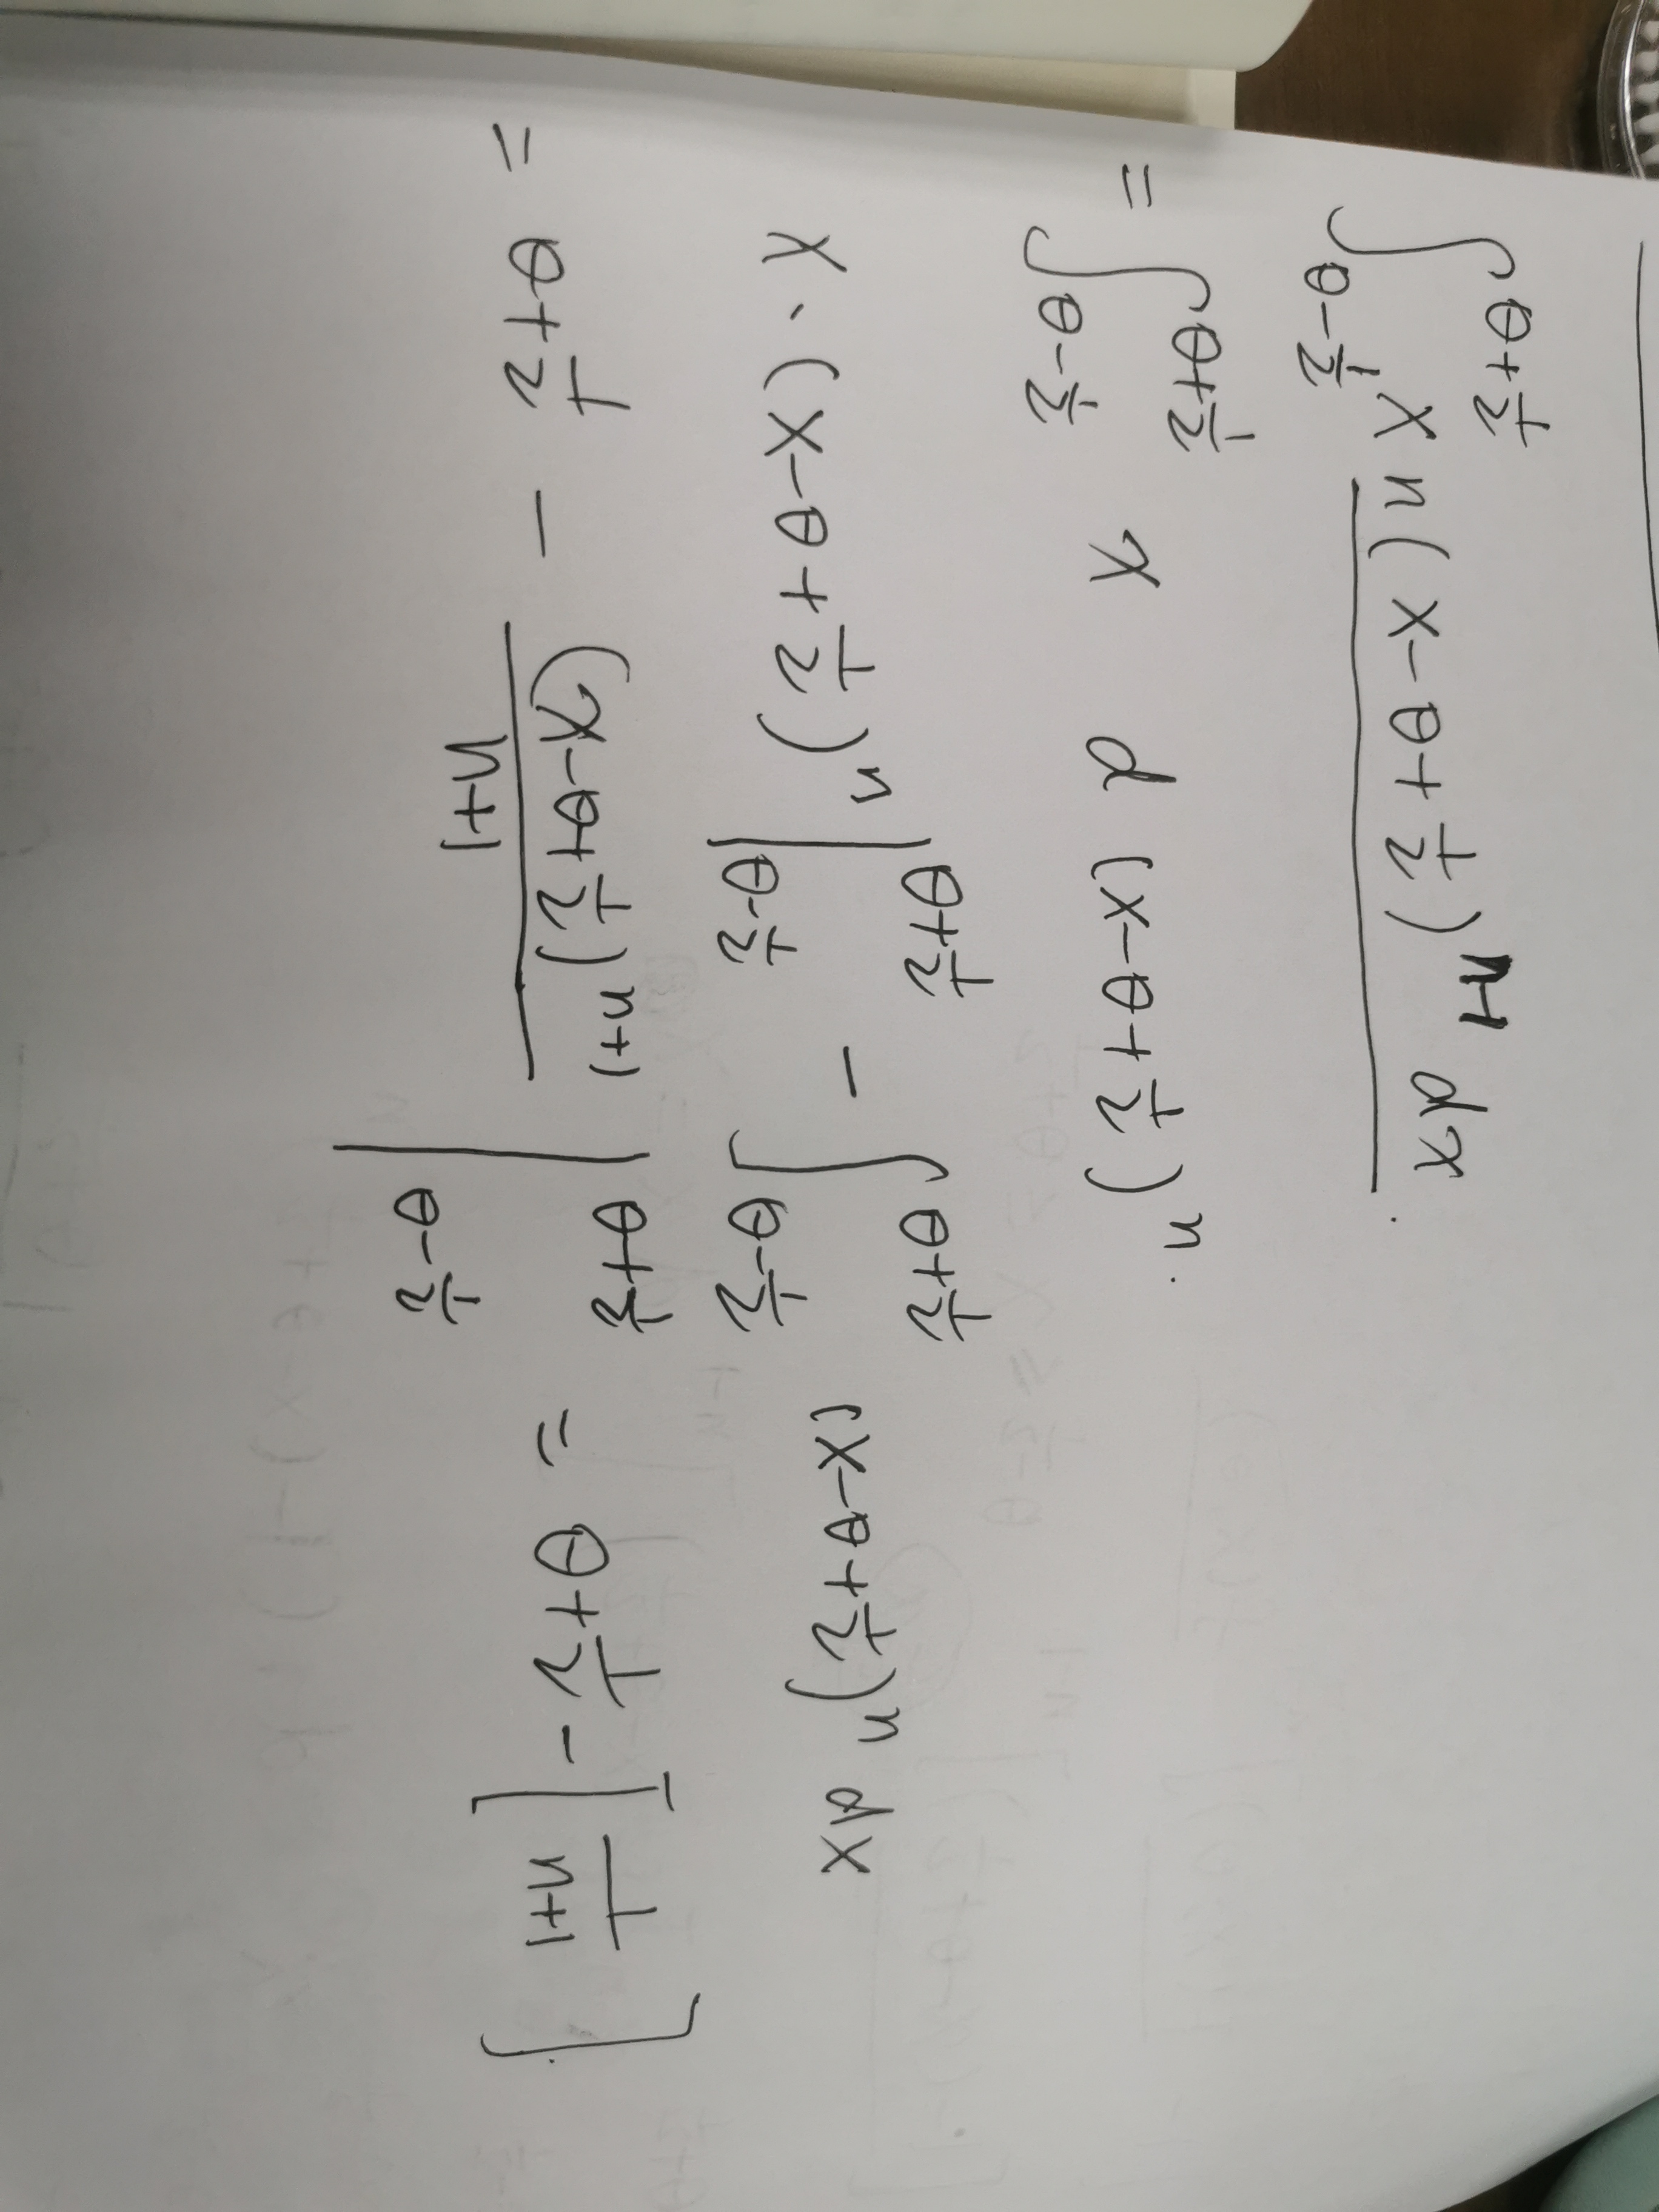 ∫_{θ-1/2}^{θ+1/2} x n(x-θ+1/2)^{n-1} dx.
= ∫_{θ-1/2}^{θ+1/2} x d(x-θ+1/2)^n.
x·(x-θ+1/2)^n |_{θ-1/2}^{θ+1/2} - ∫_{θ-1/2}^{θ+1/2} (x-θ+1/2)^n dx
= θ+1/2 - (x-θ+1/2)^{n+1}/(n+1) |_{θ-1/2}^{θ+1/2} = θ+1/2 - [1/(n+1)]